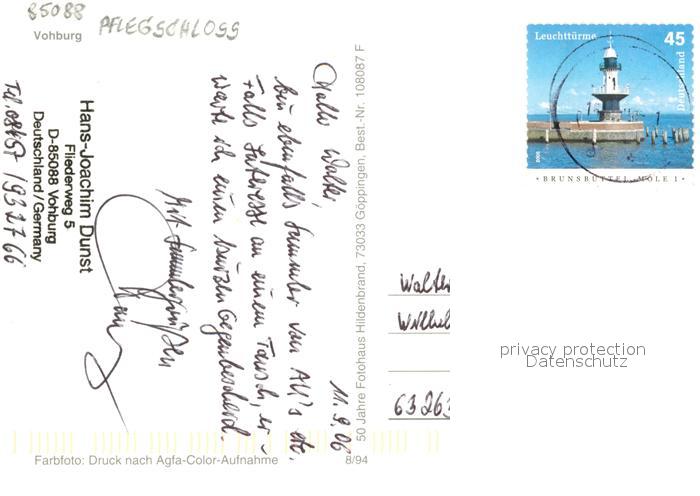 85088
Vohburg PFLEGSCHLOSS
Hans-Joachim Dunst
Fliederweg 5
D-85088 Vohburg
Deutschland/Germany
Tel. 08457/932766
11.9.06
Hallo Walter,
bin ebenfalls Sammler von AK's etc.
Falls Interesse an einem Tausch, er-
warte ich einen kurzen Gegenbescheid.
Mit Sammlergrüßen
50 Jahre Fotohaus Hildenbrand, 73033 Göppingen, Best.-Nr. 108087 F
Farbfoto: Druck nach Agfa-Color-Aufnahme 8/94
Leuchttürme 45
Deutschland
BRUNSBÜTTEL, MOLE 1
Walter
63263
privacy protection
Datenschutz